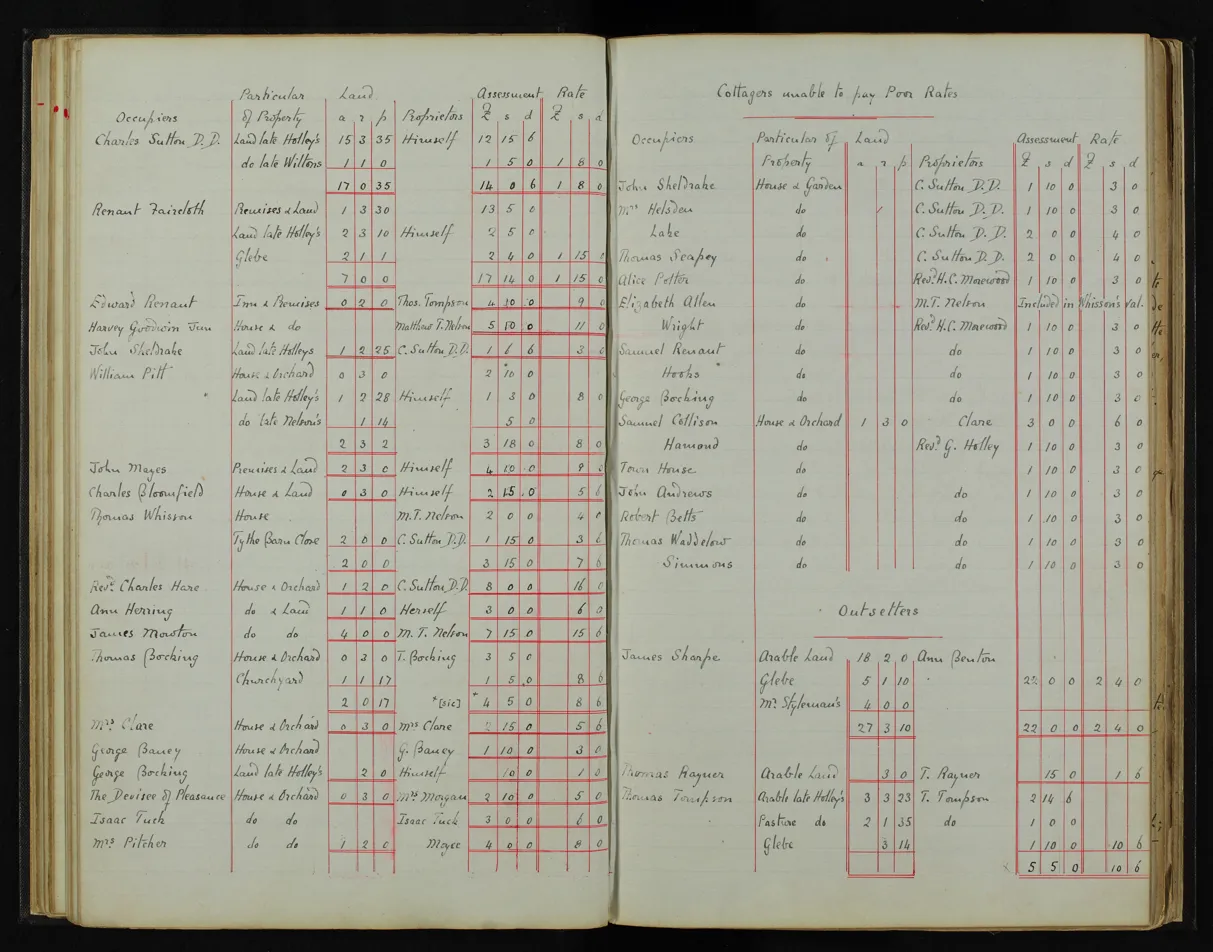 Particular Land Assessment Rate
Occupiers of Property a r p Proprietors £ s d £ s d
Charles Sutton D.D. Land late Holley's 15 3 35 Himself 12 15 6
do late Wiltons 1 1 0 1 5 0 1 8 0
17 0 35 14 0 6 1 8 0
Renant Faircloth Premises & Land 1 3 30 13 5 0
Land late Holley's 2 3 10 Himself 2 5 0
Glebe 2 1 1 2 4 0 1 15 0
7 0 0 17 14 0 1 15 0
Edward Renant Inn & Premises 0 2 0 Thos. Tompson 4 10 0 9 0
Harvey Goodwin Jun House & do Matthew T. Nelson 5 10 0 11 0
John Sheldrake Land late Holleys 1 2 25 C. Sutton D.D. 1 6 6 3 0
William Pitt House & Orchard 0 3 0 2 10 0
Land late Holley's 1 2 28 Himself 1 3 0 8 0
do late Nelson's 1 14 5 0
2 3 2 3 18 0 8 0
John Mayes Premises & Land 2 3 0 Himself 4 10 0 9 0
Charles Bloomfield House & Land 0 3 0 Himself 2 15 0 5 6
Thomas Whisson House M.T. Nelson 2 0 0 4 0
Tythe Barn Close 2 0 0 C. Sutton D.D. 1 15 0 3 6
2 0 0 3 15 0 7 6
Revd. Charles Hare House & Orchard 1 2 0 C. Sutton D.D. 8 0 0 16 0
Ann Herring do & Land 1 1 0 Herself 3 0 0 6 0
James Mowton do do 4 0 0 M. T. Nelson 7 15 0 15 6
Thomas Bocking House & Orchard 0 3 0 T. Bocking 3 5 0
Churchyard 1 1 17 1 5 0 8 6
2 0 17 *[sic] * 4 5 0 8 6
Mrs Clare House & Orchard 0 3 0 Mrs Clare 2 15 0 5 6
George Baney House & Orchard G. Baney 1 10 0 3 0
George Bocking Land late Holley's 2 0 Himself 10 0 1 0
The Devisee of Pleasance House & Orchard 0 3 0 Mrs. Morgan 2 10 0 5 0
Isaac Tuck do do Isaac Tuck 3 0 0 6 0
Mrs Pitcher do do 1 2 0 Moyse 4 0 0 8 0
Cottagers unable to pay Poor Rates
Occupiers Particular of Land Assessment Rate
Property a r p Proprietors £ s d £ s d
John Sheldrake House & Garden C. Sutton D.D. 1 10 0 3 0
Mrs Helsden do C. Sutton D.D. 1 10 0 3 0
Lake do C. Sutton D.D. 2 0 0 4 0
Thomas Seapey do C. Sutton D.D. 2 0 0 4 0
Alice Potter do Revd. H.C. Morewood 1 10 0 3 0
Elizabeth Allen do M.T. Nelson Included in Whisson's Val.
Wright do Revd. H.C. Morewood 1 10 0 3 0
Samuel Renant do do 1 10 0 3 0
Hooks do do 1 10 0 3 0
George Bocking do do 1 10 0 3 0
Samuel Collison House & Orchard 1 3 0 Clare 3 0 0 6 0
Hamond do Revd. G. Holley 1 10 0 3 0
Town House do 1 10 0 3 0
John Andrews do do 1 10 0 3 0
Robert Betts do do 1 10 0 3 0
Thomas Waddelow do do 1 10 0 3 0
Simmons do do 1 10 0 3 0
Outsetters
James Sharpe Arable Land 18 2 0 Ann Benton
Glebe 5 1 10 22 0 0 2 4 0
Mr. Styleman's 4 0 0
27 3 10 22 0 0 2 4 0
Thomas Rayner Arable Land 3 0 T. Rayner 15 0 1 6
Thomas Tompson Arable late Holley's 3 3 23 T. Tompson 2 14 6
Pasture do 2 1 35 do 1 0 0
Glebe 3 14 1 10 0 10 6
5 5 0 10 6